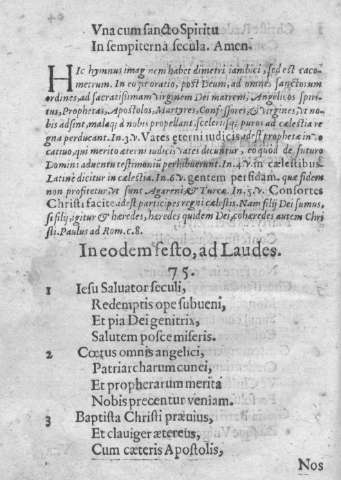 Vna cum sancto Spiritu
In sempiterna secula. Amen.
HIc hymnus imaginem habet dimetri iambici, sed est caco-
metrum. In eo fit oratio, post Deum, ad omnes sanctorum
ordines, ad sacratissimam virginem Dei matrem, Angelicos spiri-
tus, Prophetas, Apostolos, Martyres, Confessores & virgines, vt no-
bis adsint, mala q; à nobis propellant, sceleris q; puros ad cælestia re
gna perducant. In. 3. V. Vates eterni iudicis, adest propheta in vo-
catiuo, qui merito æterni iudicis vates dicuntur, eo quòd de futuro
Domini aduentu testimoniū perhibuerunt. In. 4. V. in cælestibus
Latinè dicitur in cælestia. In. 6. V. gentem perfidam. quæ fidem
non profitetur, vt sunt Agareni & Turcæ. In. 5. V. Consortes
Christi facite, id est participes regni cælestis. Nam filij Dei sumus,
si filij, igitur & heredes, heredes quidem Dei, cohæredes autem Chri
sti. Paulus ad Rom. c. 8.
In eodem festo, ad Laudes.
75.
1 Iesu Saluator seculi,
Redemptis ope subueni,
Et pia Dei genitrix,
Salutem posce miseris.
2 Cœtus omnis angelici,
Patriarcharum cunei,
Et prophetarum merita
Nobis precentur veniam.
3 Baptista Christi præuius,
Et clauiger æthereus,
Cum cæteris Apostolis,
Nos